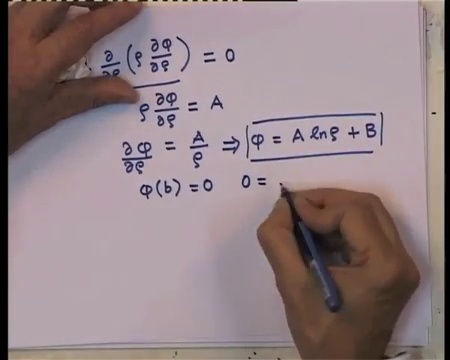 ∂/∂ρ (ρ ∂φ/∂ρ) = 0
ρ ∂φ/∂ρ = A
∂φ/∂ρ = A/ρ ⇒ φ = A lnρ + B
φ(b) = 0 0 =